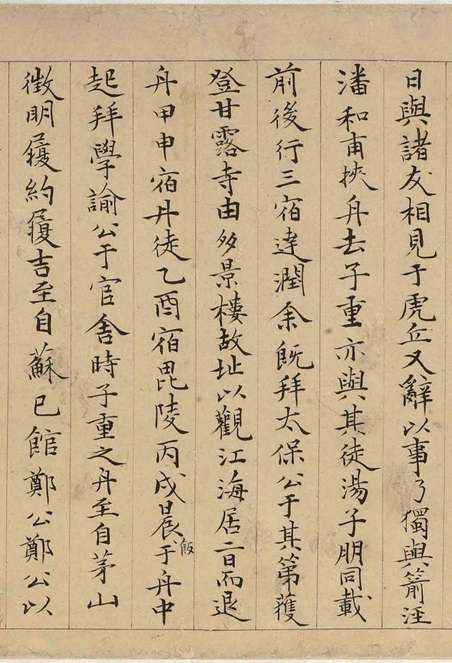 日與諸友相見于虎丘又辭以事乃獨與箭涇
潘和甫挾舟去子重亦與其徒湯子朋同載
前後行三宿達潤余既拜太保公于其第獲
登甘露寺由多景樓故址以觀江海居二日而退
舟甲申宿丹徒乙酉宿毘陵丙戌晨飯于舟中
起拜學諭公于官舍時子重之舟至自茅山
徵明履約履吉至自蘇已館鄭公鄭公以